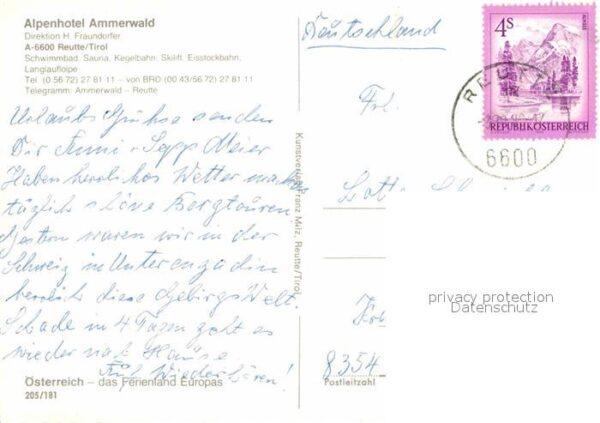 Alpenhotel Ammerwald
Direktion H. Fraundorfer
A-6600 Reutte/Tirol
Schwimmbad, Sauna, Kegelbahn, Skilift, Eisstockbahn,
Langlaufloipe
Tel (0 56 72) 27 81 11 – von BRD (00 43/56 72) 27 81 11
Telegramm: Ammerwald – Reutte
Urlaubs Grüße senden
Dir Fanni - Sepp Meier
Haben herrliches Wetter machen
täglich schöne Bergtouren.
Gestern waren wir in der
Schweiz in Unterengadin
herrlich diese Gebirgs Welt.
Schade in 4 Tagen geht es
wieder nach Hause
Auf Wiederhören!
Österreich – das Ferienland Europas
205/181
Kunstverlag Franz Milz, Reutte/Tirol
Deutschland
Frl.
8354
Postleitzahl
4S
REPUBLIK ÖSTERREICH
REUTTE
6600
privacy protection
Datenschutz